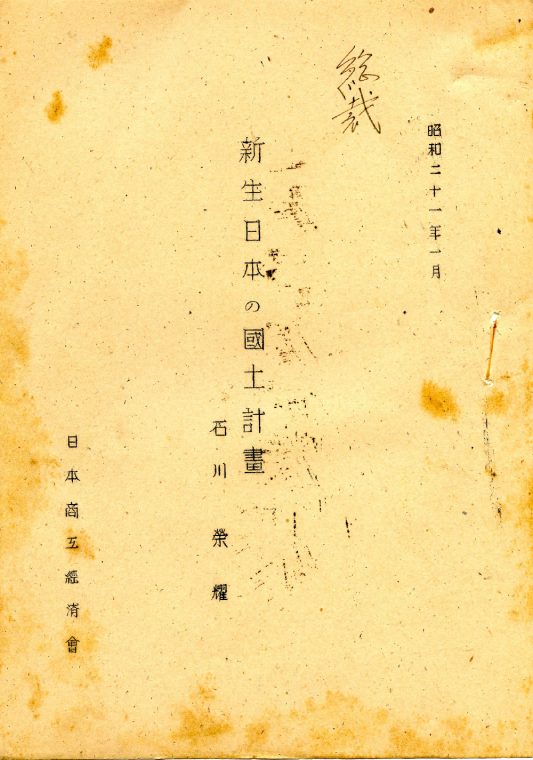 総裁
昭和二十一年一月
新生日本の國土計畫
石川 榮耀
日本商工經済會